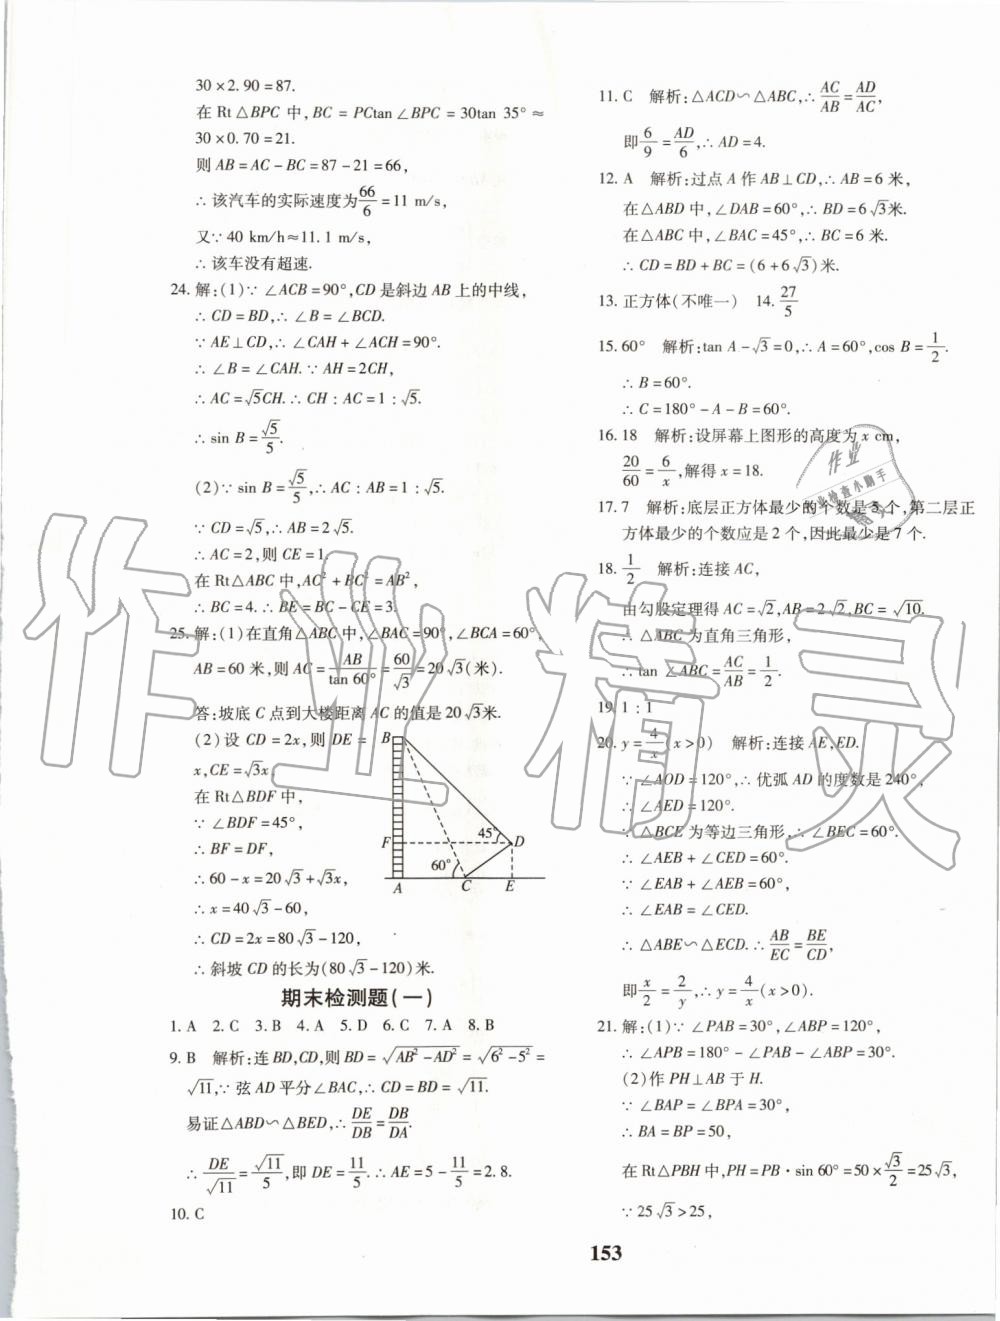 30×2.90=87.
在 Rt△BPC 中,BC=PCtan∠BPC=30tan 35°≈
30×0.70=21.
则 AB=AC-BC=87-21=66,
∴该汽车的实际速度为66/6=11 m/s,
又∵40 km/h≈11.1 m/s,
∴该车没有超速.
24.解:(1)∵∠ACB=90°,CD 是斜边 AB 上的中线,
∴CD=BD,∴∠B=∠BCD.
∵AE⊥CD,∴∠CAH+∠ACH=90°.
∴∠B=∠CAH.∵AH=2CH,
∴AC=√5CH.∴CH:AC=1:√5.
∴sin B=√5/5.
(2)∵sin B=√5/5,∴AC:AB=1:√5.
∵CD=√5,∴AB=2√5.
∴AC=2,则 CE=1.
在 Rt△ABC 中,AC²+BC²=AB²,
∴BC=4.∴BE=BC-CE=3.
25.解:(1)在直角△ABC 中,∠BAC=90°,∠BCA=60°,
AB=60 米,则 AC=AB/tan 60°=60/√3=20√3(米).
答:坡底 C 点到大楼距离 AC 的值是 20√3米.
(2)设 CD=2x,则 DE=
x,CE=√3x,
在 Rt△BDF 中,
∵∠BDF=45°,
∴BF=DF,
∴60-x=20√3+√3x,
∴x=40√3-60,
∴CD=2x=80√3-120,
∴斜坡 CD 的长为(80√3-120)米.
B
F
45°
D
60°
A
C
E
期末检测题(一)
1.A 2.C 3.B 4.A 5.D 6.C 7.A 8.B
9.B 解析:连 BD,CD,则 BD=√(AB²-AD²)=√(6²-5²)=
√11,∵弦 AD 平分∠BAC,∴CD=BD=√11.
易证△ABD∽△BED,∴DE/DB=DB/DA.
∴DE/√11=√11/5,即 DE=11/5.∴AE=5-11/5=2.8.
10.C
11.C 解析:△ACD∽△ABC,∴AC/AB=AD/AC,
即6/9=AD/6,∴AD=4.
12.A 解析:过点 A 作 AB⊥CD,∴AB=6 米,
在△ABD 中,∠DAB=60°,∴BD=6√3米.
在△ABC 中,∠BAC=45°,∴BC=6 米.
∴CD=BD+BC=(6+6√3)米.
13.正方体(不唯一) 14.27/5
15.60° 解析:tan A-√3=0,∴A=60°,cos B=1/2.
∴B=60°.
∴C=180°-A-B=60°.
16.18 解析:设屏幕上图形的高度为 x cm,
20/60=6/x,解得 x=18.
17.7 解析:底层正方体最少的个数是5个,第二层正
方体最少的个数应是 2 个,因此最少是 7 个.
18.1/2 解析:连接 AC,
由勾股定理得 AC=√2,AB=2√2,BC=√10.
∴△ABC 为直角三角形,
∴tan∠ABC=AC/AB=1/2.
19.1:1
20.y=4/x(x>0) 解析:连接 AE,ED.
∵∠AOD=120°,∴优弧 AD 的度数是 240°,
∴∠AED=120°.
∵△BCE 为等边三角形,∴∠BEC=60°.
∴∠AEB+∠CED=60°.
∵∠EAB+∠AEB=60°,
∴∠EAB=∠CED.
∴△ABE∽△ECD.∴AB/EC=BE/CD,
即x/2=2/y,∴y=4/x(x>0).
21.解:(1)∵∠PAB=30°,∠ABP=120°,
∴∠APB=180°-∠PAB-∠ABP=30°.
(2)作 PH⊥AB 于 H.
∵∠BAP=∠BPA=30°,
∴BA=BP=50,
在 Rt△PBH 中,PH=PB·sin 60°=50×√3/2=25√3,
∵25√3>25,
153
作业精灵
作业
作业检查小助手